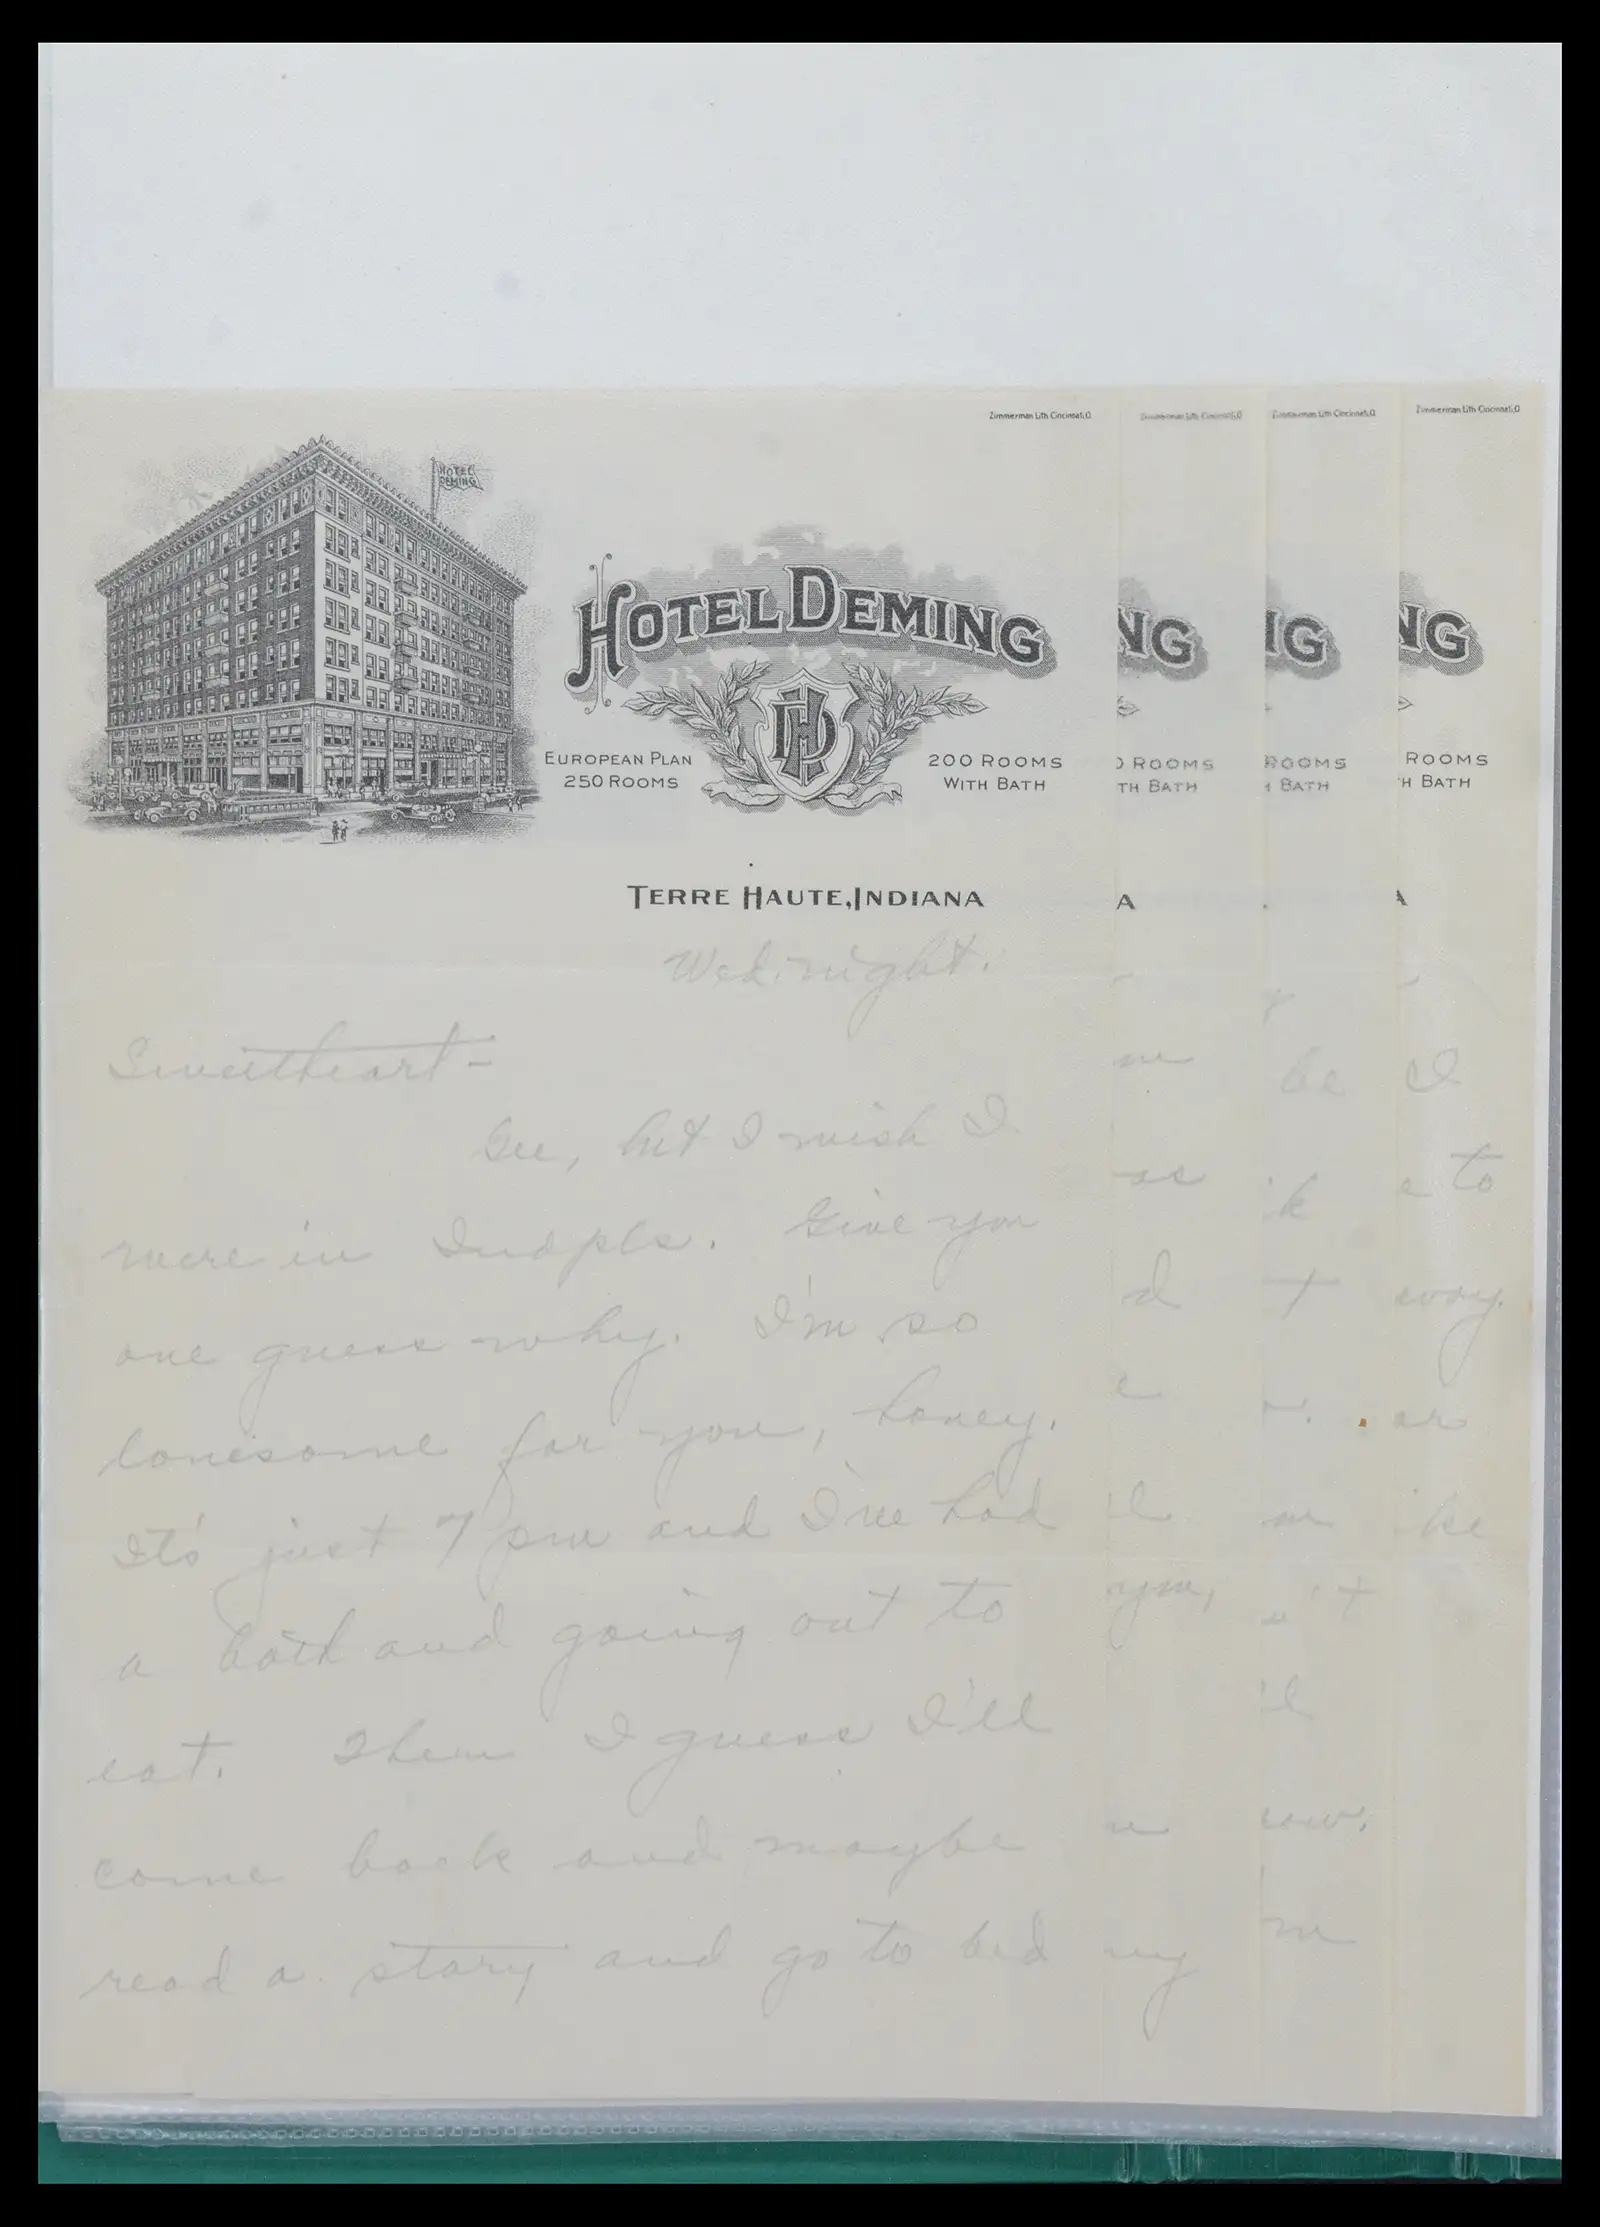 Zimmerman Lith. Cincinnati, O. Zimmerman Lith. Cincinnati, O. Zimmerman Lith. Cincinnati, O. Zimmerman Lith. Cincinnati, O.
HOTEL DEMING
HOTEL DEMING NG NG NG
HD
EUROPEAN PLAN
250 ROOMS
200 ROOMS ROOMS ROOMS ROOMS
WITH BATH TH BATH H BATH H BATH
TERRE HAUTE, INDIANA A A
Wed. night.
Sweetheart — be I
Gee, but I wish I as k to
were in Indpls. Give you
one guess why. I'm so
lonesome for you, honey.
It's just 7 pm and I've had
a bath and going out to
eat. Then I guess I'll
come back and maybe
read a story and go to bed